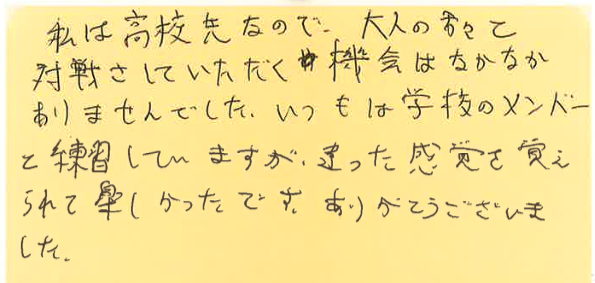 私は高校生なので、大人の方々と
対戦させていただく機会はなかなか
ありませんでした。いつもは学校のメンバー
と練習していますが、違った感覚を覚え
られて楽しかったです。ありがとうございま
した。